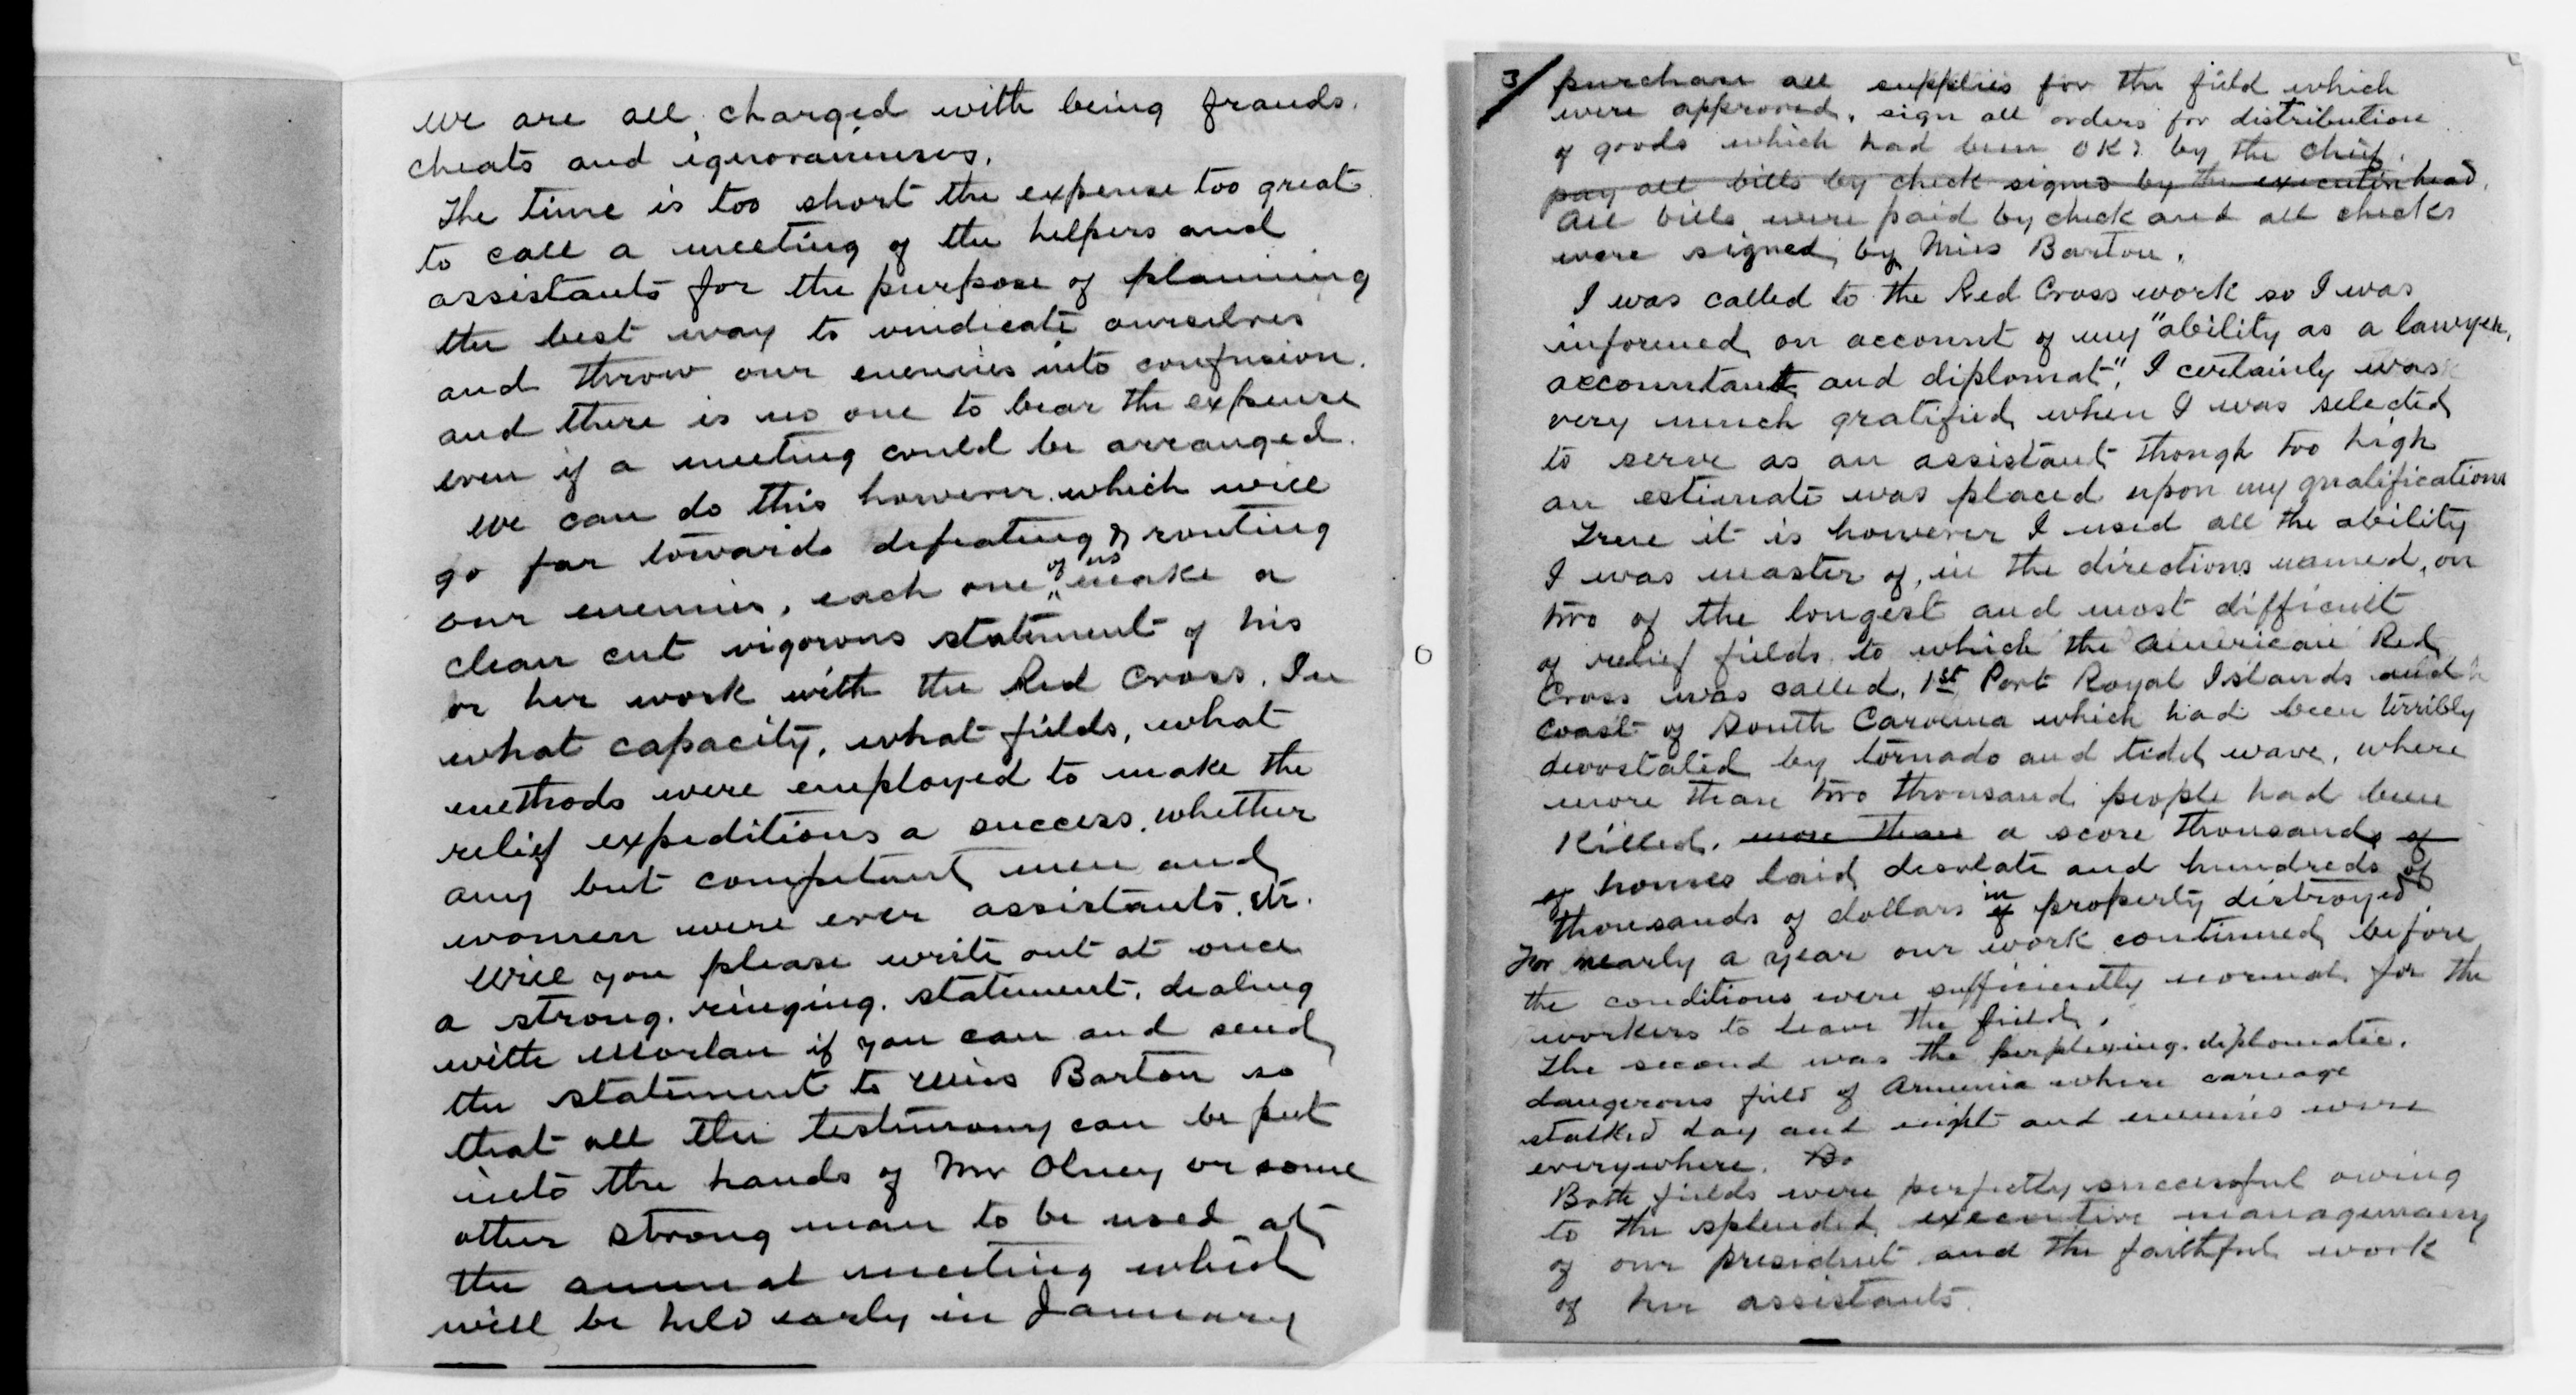 we are all, charged with being frauds,
cheats and ignoramuses.
The time is too short the expense too great
to call a meeting of the helpers and
assistants for the purpose of planning
the best way to vindicate ourselves
and throw our enemies into confusion.
and there is no one to bear the expense
even if a meeting could be arranged.
We can do this however, which will
go far towards defeating & routing
our enemies, each one of us make a
clean cut vigorous statement of his
or her work with the Red Cross. In
what capacity, what fields, what
methods were employed to make the
relief expeditions a success, whether
any but competent men and
women were ever assistants, etc.
Will you please write out at once
a strong, ringing, statement, dealing
with Morlan if you can and send
the statement to Miss Barton so
that all the testimony can be put
into the hands of Mr Olney or some
other strong man to be used at
the annual meeting which
will be held early in January
3/ purchase all supplies for the field which
were approved, sign all orders for distribution
of goods which had been OKd by the chief.
pay all bills by check signed by the executive head.
All bills were paid by check and all checks
were signed by Miss Barton.
I was called to the Red Cross work so I was
informed on account of my "ability as a lawyer,
accountant and diplomat", I certainly was
very much gratified when I was selected
to serve as an assistant though too high
an estimate was placed upon my qualifications
True it is however I used all the ability
I was master of, in the directions named, on
two of the longest and most difficult
of relief fields to which the American Red
Cross was called, 1st Port Royal Islands and
coast of South Carolina which had been terribly
devastated by tornado and tidal wave, where
more than two thousand people had been
killed, more than a score thousands of
of homes laid desolate and hundreds of
thousands of dollars of in property distroyed.
For nearly a year our work continued before
the conditions were sufficiently normal for the
workers to leave the field.
The second was the perplexing, diplomatic,
dangerous field of Armenia where carnage
stalked day and night and enemies were
everywhere. Bo
Both fields were perfectly successful owing
to the splendid executive
of our president and the faithful work
of her assistants.